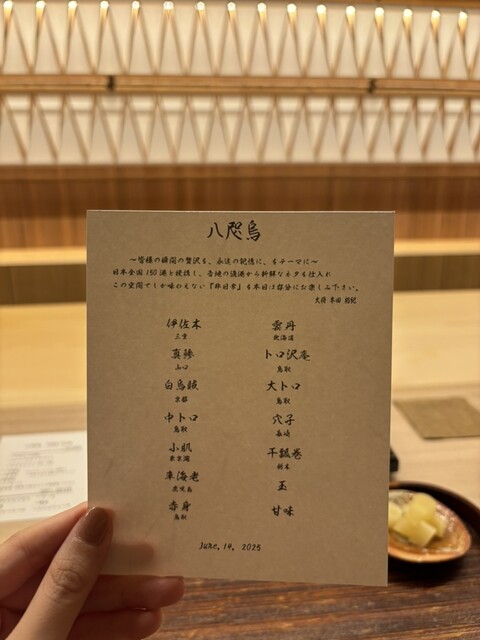 八咫烏
～皆様の瞬間の贅沢を、永遠の記憶に、をテーマに～
日本全国150港を提携し、各地の漁港から新鮮なネタを仕入れ
この空間でしか味わえない『非日常』を本日は存分にお楽しみ下さい。
大将
伊佐木
三重
真鯵
山口
白烏賊
京都
中トロ
鳥取
小肌
東京湾
車海老
鹿児島
赤身
鳥取
雲丹
北海道
トロ沢庵
鳥取
大トロ
鳥取
穴子
長崎
干瓢巻
栃木
玉
甘味
June, 14, 2025